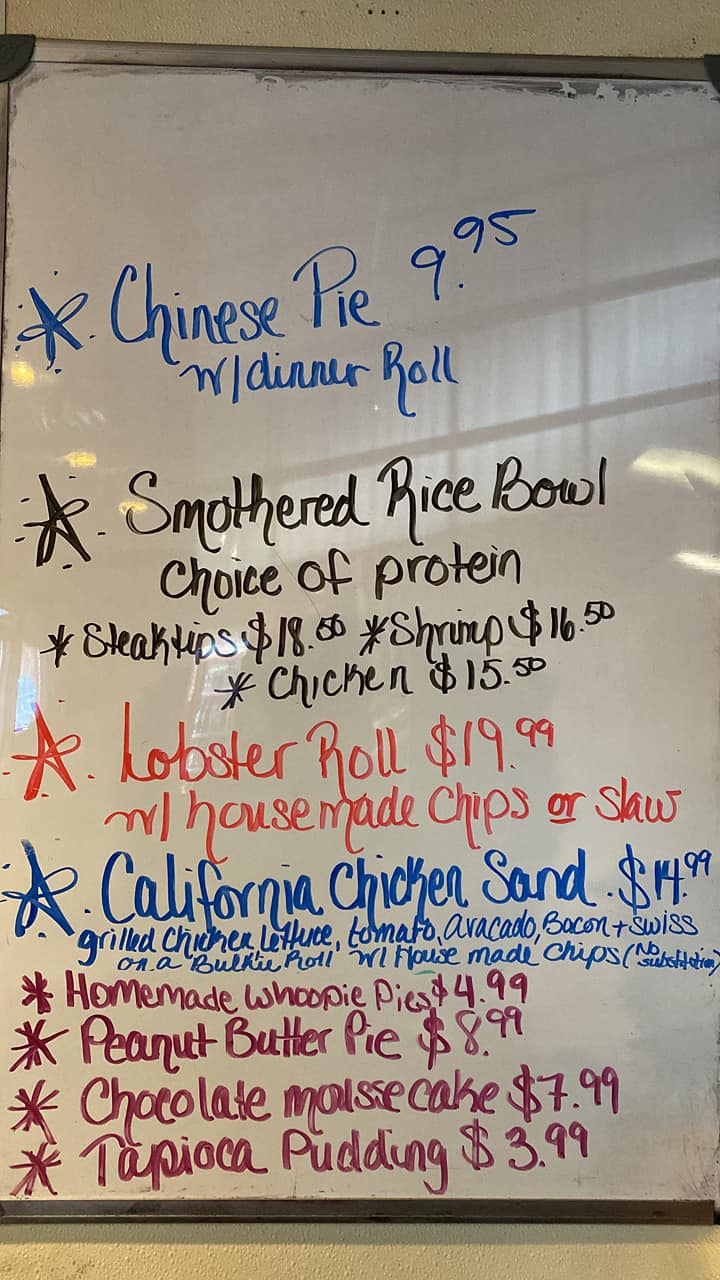 Chinese Pie 9.95
w/dinner Roll
Smothered Rice Bowl
choice of protein
* Steaktips $18.50 * Shrimp $16.50
* Chicken $15.50
Lobster Roll $19.99
w/ housemade Chips or Slaw
California Chicken Sand. $14.99
grilled Chicken, Lettuce, tomato, avacado, Bacon + Swiss
on a Bulkie Roll w/ House made Chips (No substitution)
* Homemade Whoopie Pies $4.99
* Peanut Butter Pie $8.99
* Chocolate mousse cake $7.99
* Tapioca Pudding $3.99